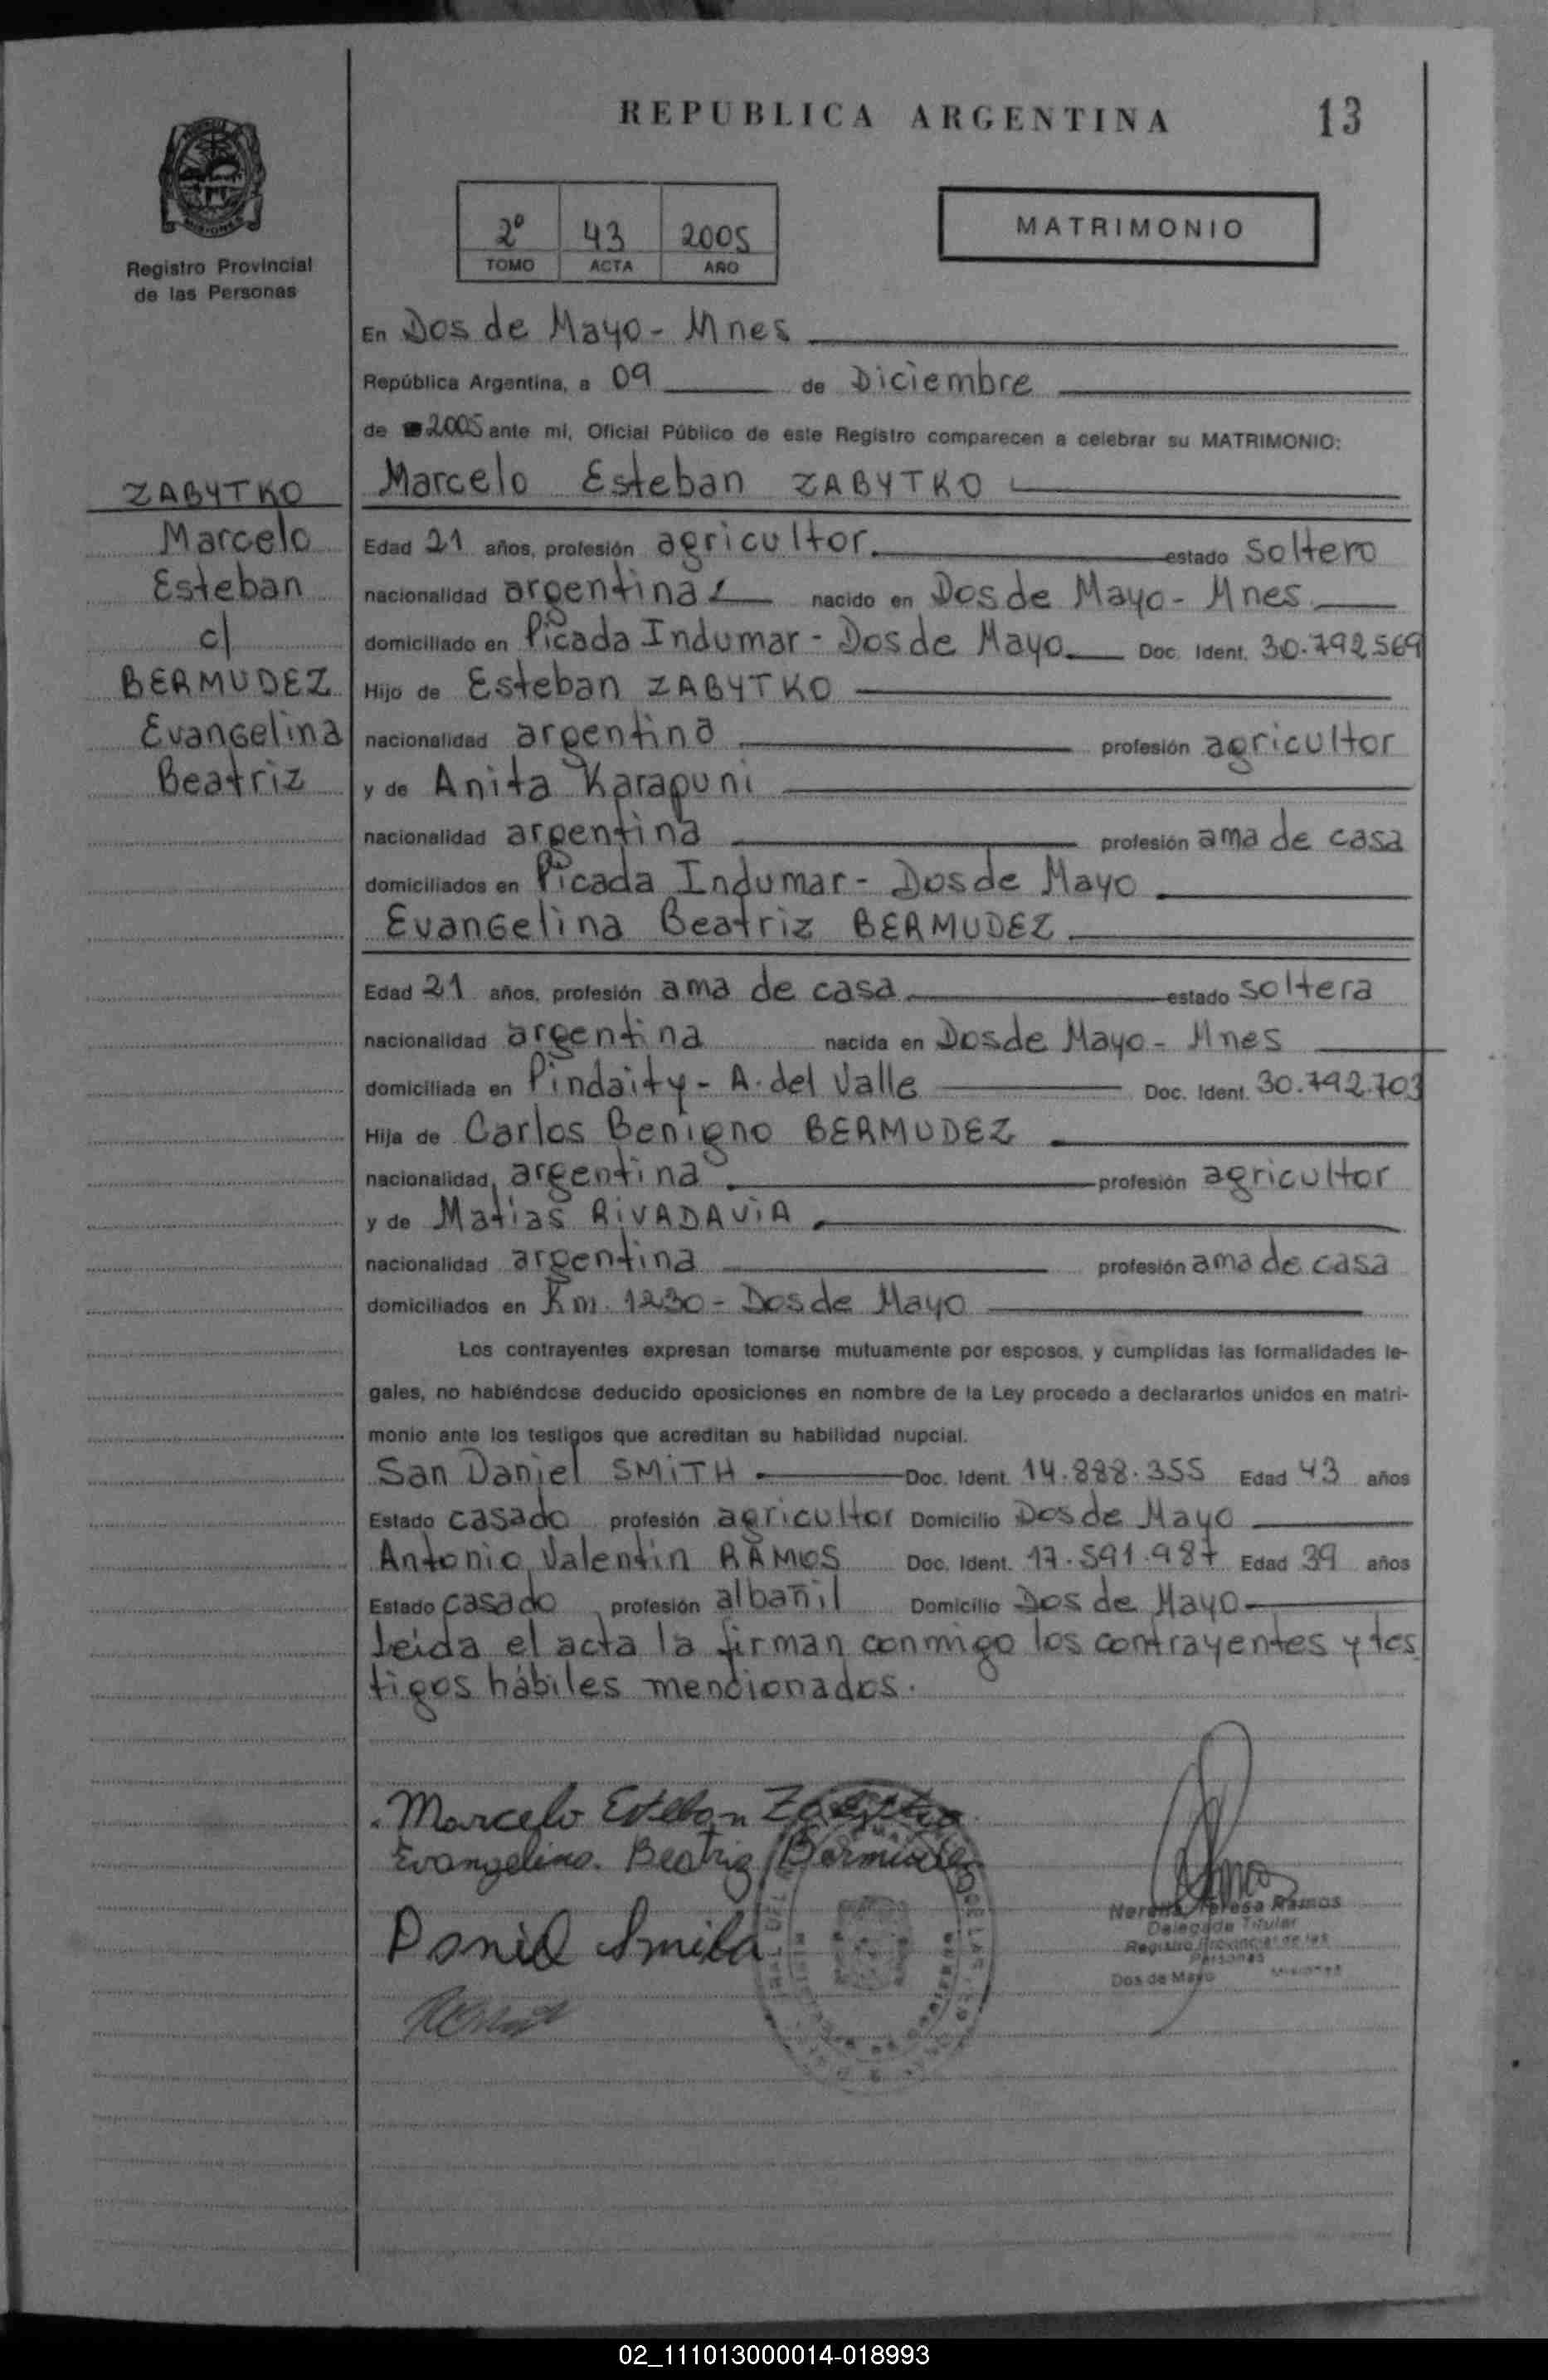 REPUBLICA ARGENTINA 13
2º 43 2005
TOMO ACTA AÑO
MATRIMONIO
Registro Provincial
de las Personas
ZABYTKO
Marcelo
Esteban
c/
BERMUDEZ
Evangelina
Beatriz
En Dos de Mayo - Mnes
República Argentina, a 09 de Diciembre
de 2005 ante mi, Oficial Público de este Registro comparecen a celebrar su MATRIMONIO:
Marcelo Esteban ZABYTKO
Edad 21 años, profesión agricultor. estado soltero
nacionalidad argentina nacido en Dos de Mayo - Mnes
domiciliado en Picada Indumar - Dos de Mayo Doc. Ident. 30.792.569
Hijo de Esteban ZABYTKO
nacionalidad argentina profesión agricultor
y de Anita Karapuni
nacionalidad argentina profesión ama de casa
domiciliados en Picada Indumar - Dos de Mayo
Evangelina Beatriz BERMUDEZ
Edad 21 años, profesión ama de casa estado soltera
nacionalidad argentina nacida en Dos de Mayo - Mnes
domiciliada en Pindaity - A. del Valle Doc. Ident. 30.792.703
Hija de Carlos Benigno BERMUDEZ
nacionalidad argentina profesión agricultor
y de Matias RIVADAVIA
nacionalidad argentina profesión ama de casa
domiciliados en Km. 1230 - Dos de Mayo
Los contrayentes expresan tomarse mutuamente por esposos, y cumplidas las formalidades le-
gales, no habiéndose deducido oposiciones en nombre de la Ley procedo a declararlos unidos en matri-
monio ante los testigos que acreditan su habilidad nupcial.
San Daniel SMITH Doc. Ident. 14.888.355 Edad 43 años
Estado casado profesión agricultor Domicilio Dos de Mayo
Antonio Valentin RAMOS Doc. Ident. 17.591.987 Edad 39 años
Estado casado profesión albañil Domicilio Dos de Mayo
Leida el acta la firman conmigo los contrayentes y tes
tigos hábiles mencionados.
Marcelo Esteban Zabytko
Evangelina Beatriz Bermudez
Daniel Smith
Teresa Ramos
Delegada Titular
Registro Provincial de las
Personas
Dos de Mayo Misiones
02_111013000014-018993